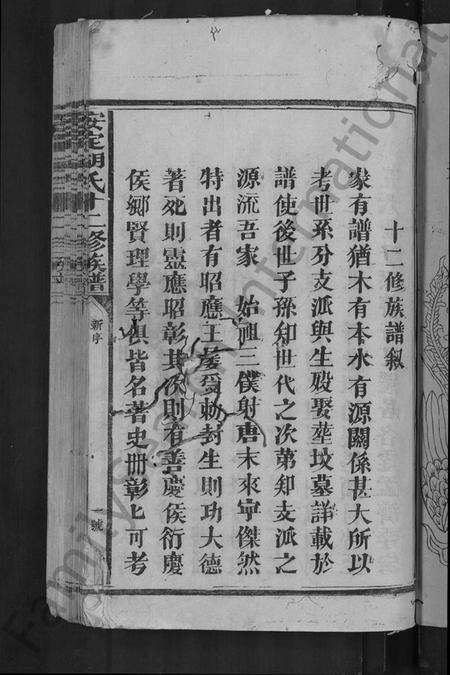 十二修族譜叙
家有譜猶木有本水有源關係甚大所以
考世系分支派與生殁娶塟坟墓詳載於
譜使後世子孫知世代之次第知支派之
源流吾家 始祖三僕射唐末來寧傑然
特出者有昭應王爰受勅封生則功大德
著死則靈應昭彰其後則有善慶侯衍慶
侯鄉賢理學等俱皆名著史冊彰匕可考
安定胡氏十二修族譜
新序
一號
FamilySearch International